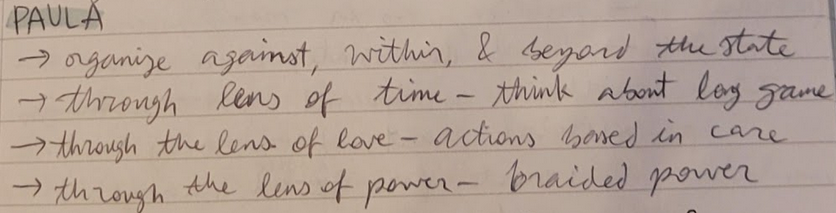 PAULA
→ organize against, within, & beyond the state
→ through lens of time – think about long game
→ through the lens of love – actions based in care
→ through the lens of power – braided power